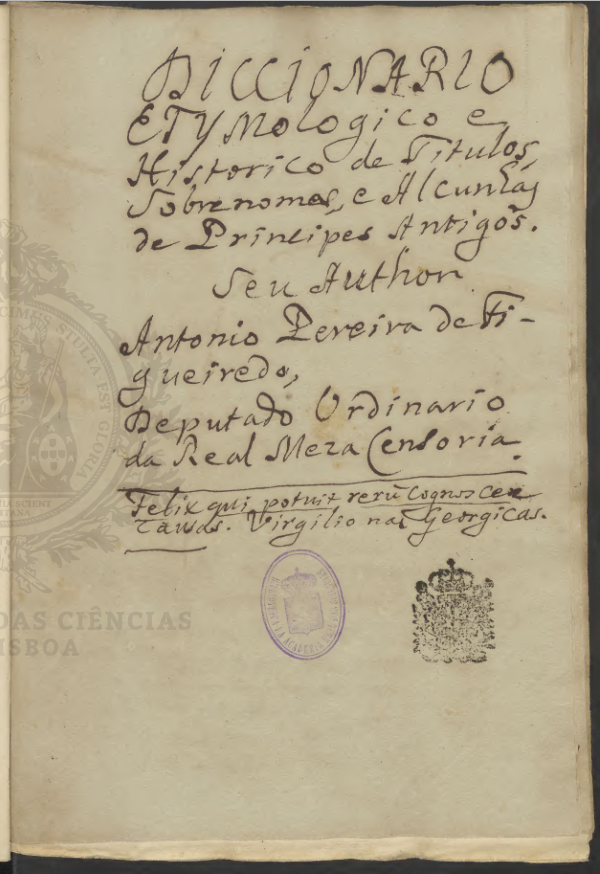 DICCIONARIO
ETYMologico e
Historico de Titulos,
Sobrenomes, e Alcunhas
de Principes Antigos.
Seu Author
Antonio Pereira de Fi-
gueiredo,
Deputado Ordinario
da Real Meza Censoria.
Felix qui potuit rerũ Cognoscere
Causas. Virgilio nas Georgicas.
DAS CIÊNCIAS
ISBOA